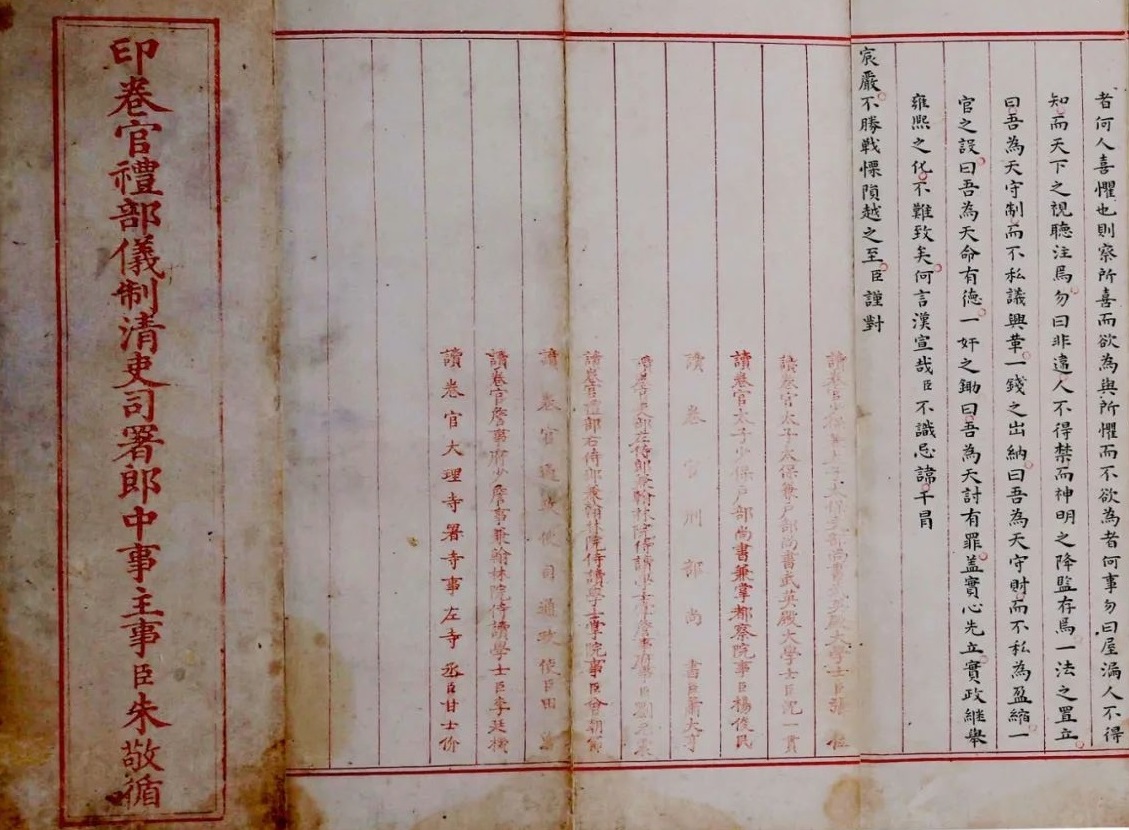 者何人喜懼也則察所喜而欲為與所懼而不欲為者何事勿曰屋漏人不得
知而天下之視聽注焉勿曰非違人不得禁而神明之降監存焉一法之置立
曰吾為天守制而不私議興革一錢之出納曰吾為天守財而不私為盈縮一
官之設曰吾為天命有德一奸之鋤曰吾為天討有罪蓋實心先立實政繼舉
雍熙之化不難致矣何言漢宣哉臣不識忌諱干冒
宸嚴不勝戰慄隕越之至臣謹對
讀卷官少保兼太子太保吏部尚書武英殿大學士臣張位
讀卷官太子太保兼戶部尚書武英殿大學士臣沈一貫
讀卷官太子少保戶部尚書兼掌都察院事臣楊俊民
讀卷官刑部尚書臣蕭大亨
讀卷官吏部左侍郎兼翰林院侍讀學士掌詹事府事臣劉元震
讀卷官禮部右侍郎兼翰林院侍讀學士掌院事臣曾朝節
讀卷官通政使司通政使臣田
讀卷官詹事府少詹事兼翰林院侍讀學士臣李廷機
讀卷官大理寺署寺事左寺丞臣甘士价
印卷官禮部儀制清吏司署郎中事主事臣朱敬循